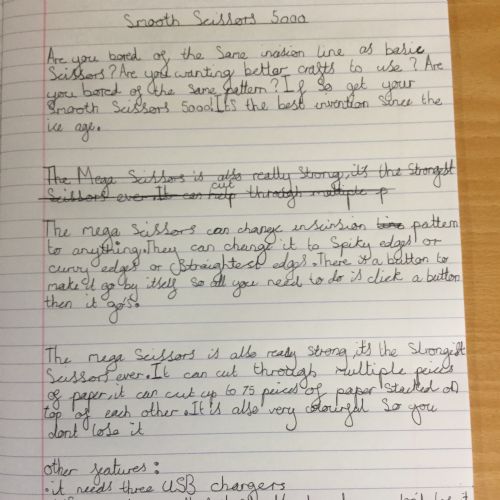 Smooth Scissors 5000
Are you bored of the same incision line as basic
Scissors? Are you wanting better crafts to use? Are
you bored of the same pattern? If so get your
Smooth Scissors 5000! It's the best invention since the
ice age.
The Mega Scissors is also really strong, it's the strongest
cut
Scissors ever. It can help through multiple p
The mega Scissors can change inscirsion line pattern
to anything. They can change it to Spiky edges or
curvy edges or Straightest edges. There is a button to
make it go by itself so all you need to do is click a button
then it go's.
The mega Scissors is also realy strong, it's the Strongest
Scissors ever. It can cut through multiple peices
of paper, it can cut up to 75 peices of paper stacked on
top of each other. It is also very colourful so you
dont lose it
other features:
• it needs three USB chargers